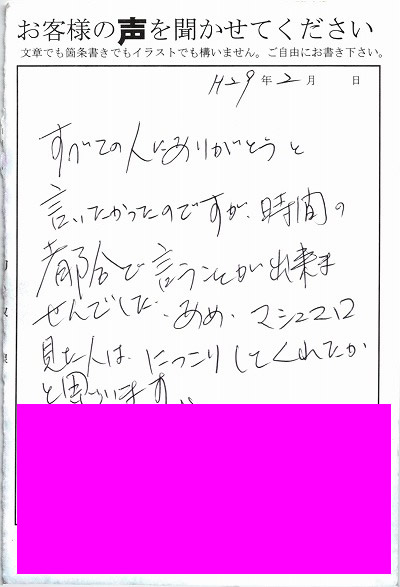 お客様の声を聞かせてください
文章でも箇条書きでもイラストでも構いません。ご自由にお書き下さい。
H29年2月 日
すべての人にありがとうと
言いたかったのですが、時間の
都合で言うことが出来ま
せんでした。あめ、マシュマロ
見た人は、にっこりしてくれたか
と思います。